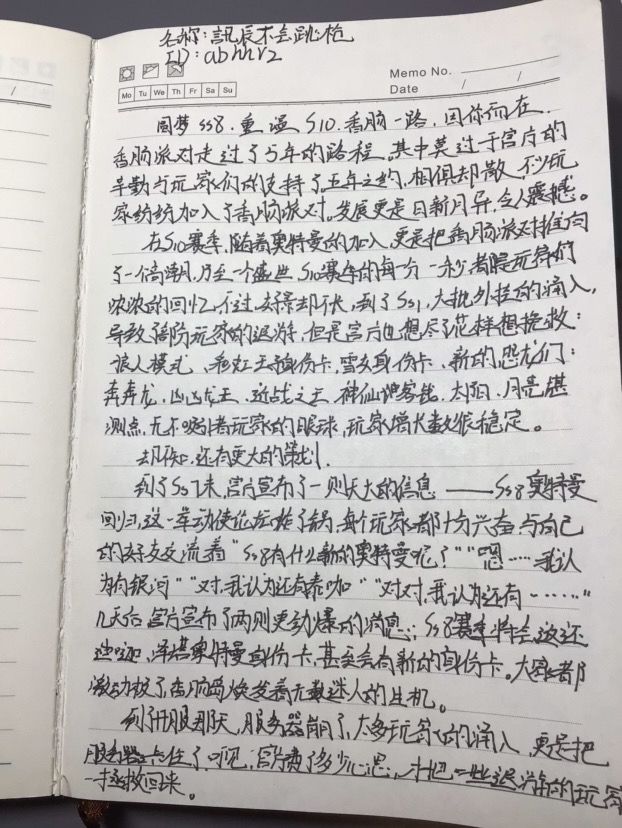 名称:訊辰不会跳枪
ID:abhhrz
Memo No.
Mo Tu We Th Fr Sa Su
Date / /
圆梦SS8.重温S10.香肠一路,因你而在.
香肠派对走过了5年的路程,其中莫过于官方的
辛勤与玩家们的支持了,五年之约,相俱却散,不少玩
家纷纷加入了香肠派对.发展更是日新月异,令人震憾。
在S10赛季,随着奥特曼的加入,更是把香肠派对推向
了一个高潮,乃至一个盛世,S10赛季的每一分一秒,都是玩家们
浓浓的回忆,不过好景却不长,到了SS1,大批外挂的涌入,
导致了部防玩家的退游,但是官方也想尽了花样想挽救:
狼人模式、彩虹王身份卡,雪女身份卡、新的恐龙们:
奔奔龙,凶凶龙王,近战之王,神仙傀客战,太阳、月亮堪
测点,无不吸引着玩家的眼球,玩家增长数很稳定。
却不知,还有更大的策划.
到了SS7末,官方宣布了一则天大的信息——SS8奥特曼
回归,这一举动使论坛炸了锅,每个玩家都十分兴奋,与自己
的好友交流着"SS8有什么新的奥特曼呢?""嗯……我认
为有银河""对,我认为还有泰咖""对对,我认为还有……"
几天后,官方宣布了两则更劲爆的消息:SS8赛季将会返还
迪迦,泽塔奥特曼身份卡,甚至会有新的身份卡。大家都
激动极了,香肠岛焕发着无数迷人的生机。
到了开服那天,服务器崩了,太多玩家的涌入,更是把
服务器卡住了.可见,官方费了多少心思,才把一些退游的玩家
一一拯救回来。